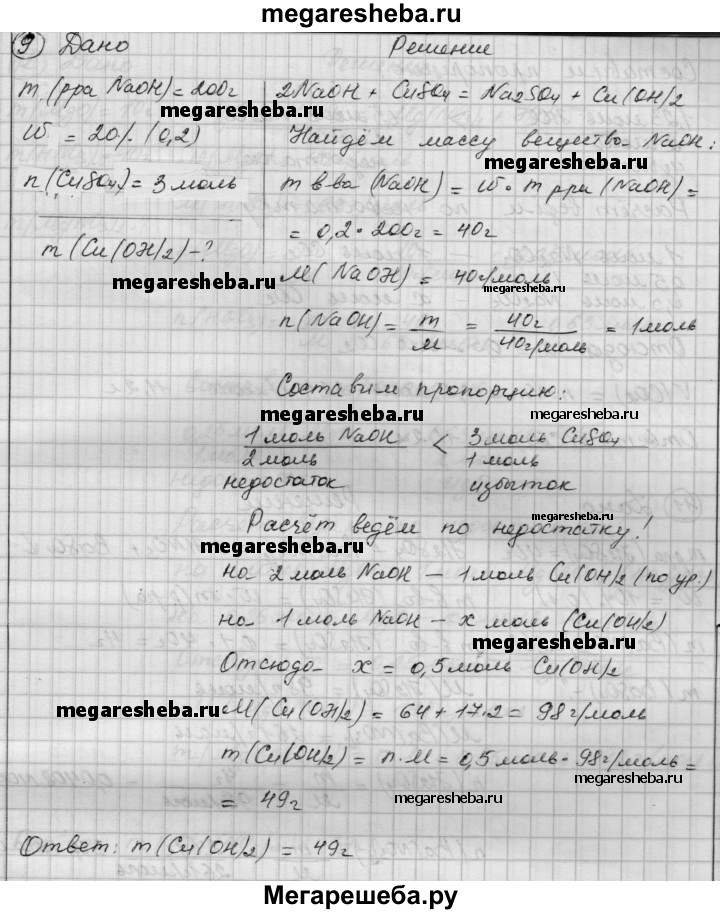 megaresheba.ru
9) Дано Решение
m (рра NaOH) = 200г 2NaOH + CuSO4 = Na2SO4 + Cu(OH)2
megaresheba.ru
W = 20% (0,2) Найдём массу вещества NaOH:
megaresheba.ru
n (CuSO4) = 3 моль m в-ва (NaOH) = W · m рра (NaOH) =
m (Cu(OH)2) - ? = 0,2 · 200г = 40г
megaresheba.ru M(NaOH) = 40г/моль
megaresheba.ru
n(NaOH) = m/M = 40г/40г/моль = 1 моль
Составим пропорцию:
megaresheba.ru megaresheba.ru
1 моль NaOH < 3 моль CuSO4
2 моль 1 моль
недостаток избыток
megaresheba.ru
Расчёт ведём по недостатку!
megaresheba.ru
на 2 моль NaOH – 1 моль Cu(OH)2 (по ур.)
на 1 моль NaOH – x моль (Cu(OH)2)
megaresheba.ru
Отсюда x = 0,5 моль Cu(OH)2
megaresheba.ru
M(Cu(OH)2) = 64 + 17·2 = 98 г/моль
m(Cu(OH)2) = n·M = 0,5 моль · 98г/моль =
megaresheba.ru
= 49г megaresheba.ru
Ответ: m(Cu(OH)2) = 49г
Мегарешеба.ру